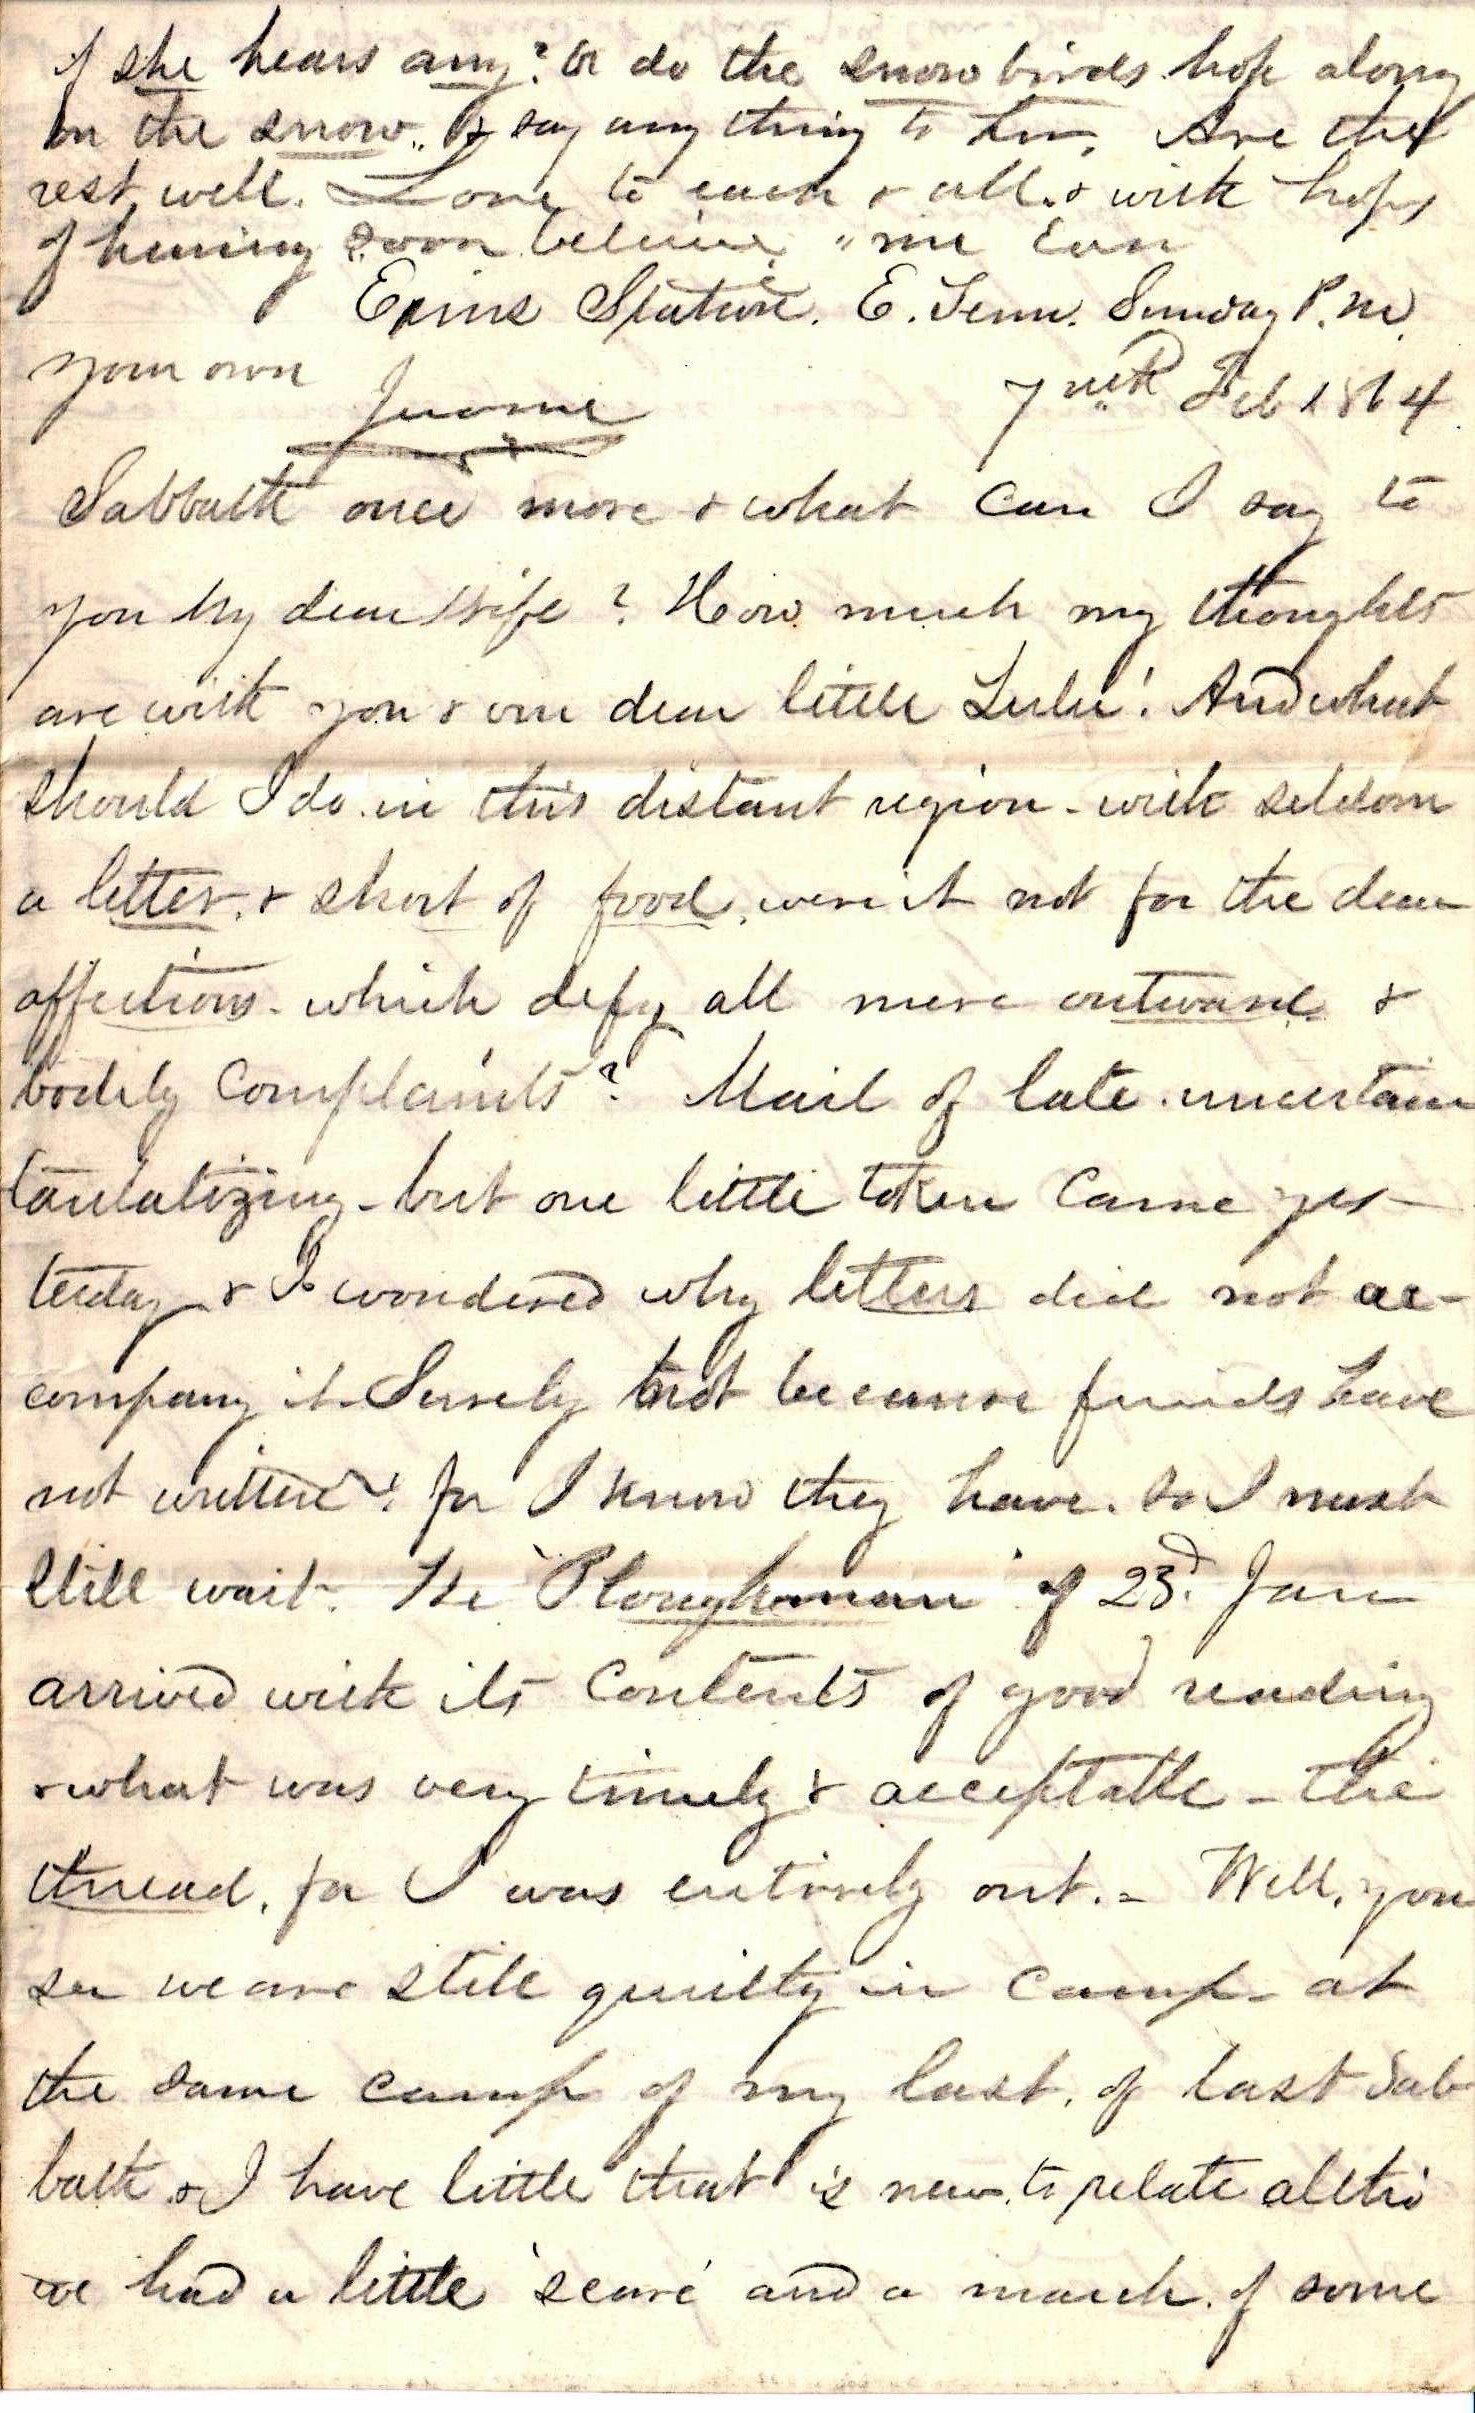 if she hears any? Or do the snow birds hop along
on the snow, & say any thing to her. Are the
rest well. Love to each & all. & with hops
of hearing soon believe "me Ever
Erins Station. E. Tenn. Sunday P.M.
your own Jerome 7th Feb 1864
Sabbath once more & what can I say to
you My dear Wife? How much my thoughts
are with you & our dear little Lulu! And what
should I do in this distant region - with seldom
a letter, & short of food, were it not for the dear
affections - which defy all mere outward &
bodily Complaints? Mail of late uncertain
tantalizing - but one little token Came yes-
terday & I wondered why letters did not ac-
company it - Surely not because friends have
not written; for I know they have. So I must
still wait. The 'Ploughman' of 23d. Jan
arrived with its Contents of good reading
& what was very timely & acceptable - the
thread, for I was entirely out. - Well, you
see we are still quietly in Camp - at
the same camp of my last, of last Sab
bath & I have little that is new to relate altho
we had a little 'scare' and a march of some